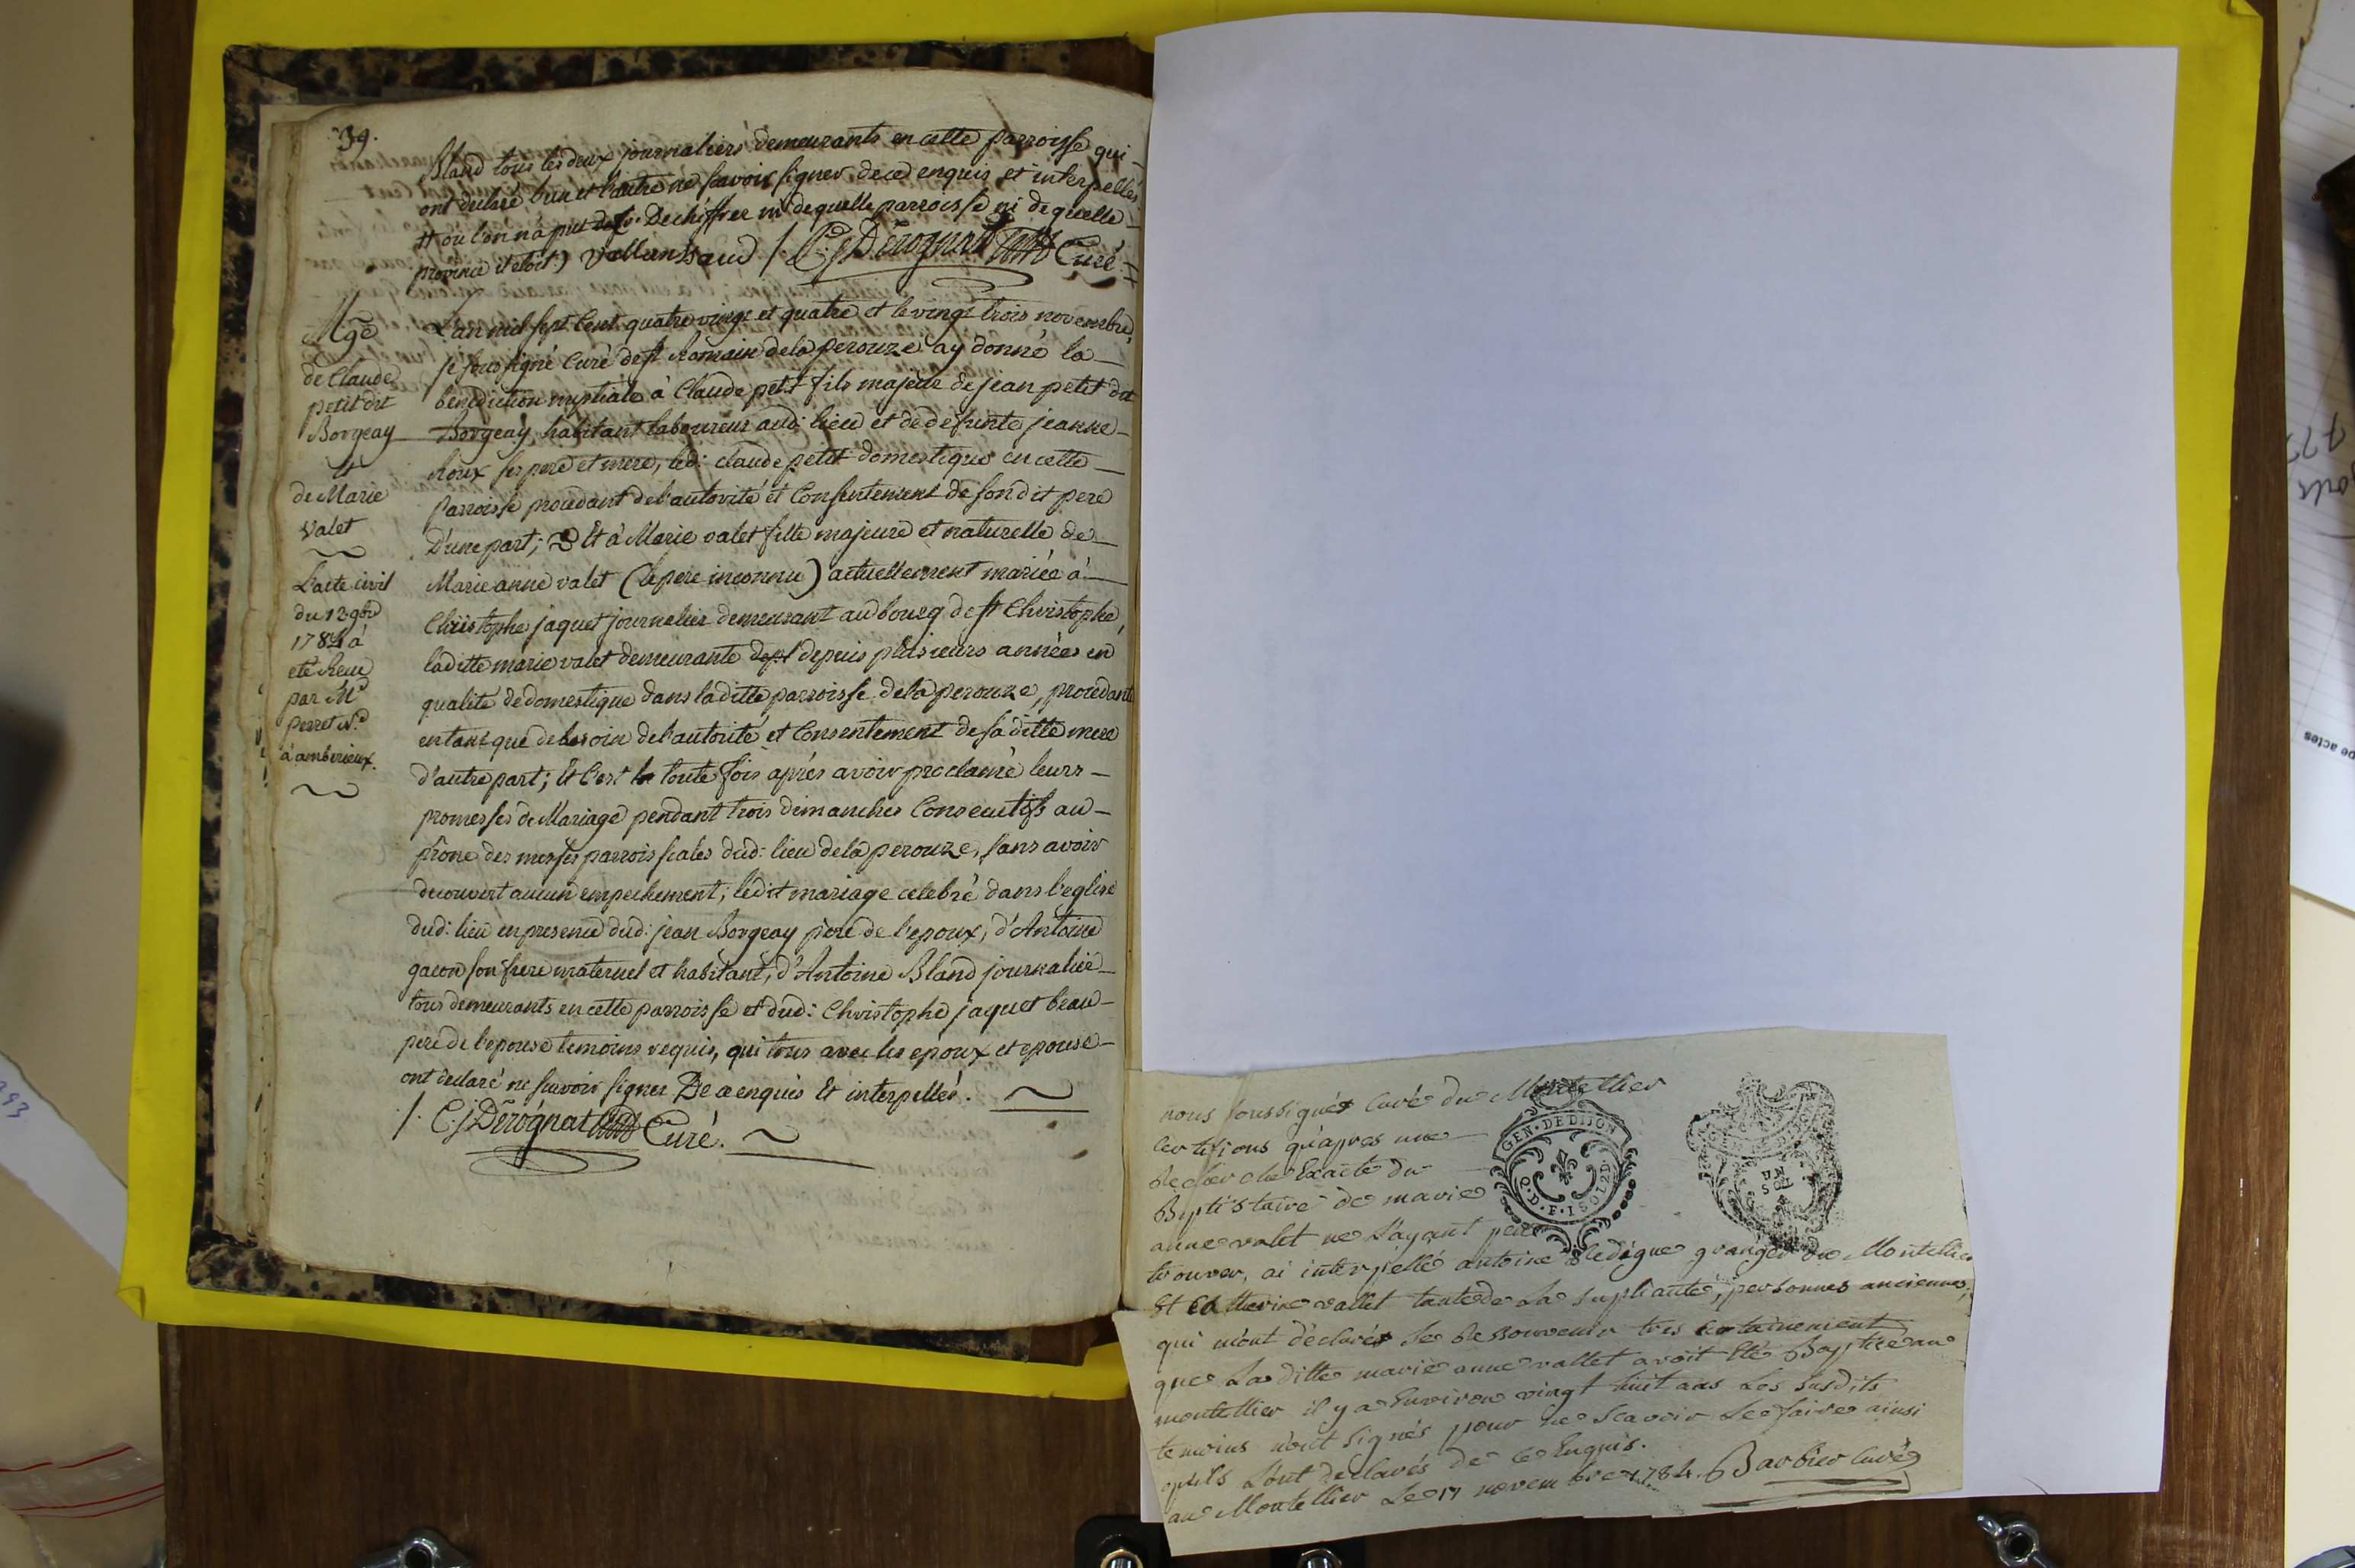 39.
Bland tous les deux journaliers demeurants en cette parroisse qui
ont declaré l'un et l'autre ne scavoir signer de ce enquis et interpellés
# ou l'on n'a put Dechiffrer ni de quelle parroisse ni de quelle
province il etoit) C: j Derognat Curé
Mge
de Claude
petit dit
Borgeay
et
de Marie
Valet
L'acte civil
du 12 9bre
1784 a
eté Receu
par Me
perret Nre
à amberieux.
L'an mil sept Cent quatre vingt et quatre et le vingt trois novembre,
je soussigné Curé de st Romain de la perouze ay donné la
benediction nuptiale à Claude petit fils majeur de jean petit dit
Borgeay, habitant laboureur aud: lieu et de defunte jeanne
Roux ses pere et mere, led: claude petit domestique en cette
Parroisse procedant de l'autorité et Consentement de son dit pere
D'une part; Et à Marie valet fille majeure et naturelle de
Marie anne valet (le pere inconnu) actuellement mariée à
Christophe jaquet journalier demeurant au bourg de st Christophe,
laditte marie valet demeurante dept depuis plusieurs années en
qualité de domestique dans laditte parroisse de la perouze, procedante
en tant que de besoin de l'autorité et Consentement de sa ditte mere
d'autre part; Et C'est toute fois aprés avoir proclamé leurs
promesses de Mariage pendant trois dimanches Consecutifs au
prône des messes parroissiales dud: lieu de la perouze, sans avoir
decouvert aucun empechement; ledit mariage celebré dans l'eglise
dud: lieu en presence dud: jean Borgeay pere de l'epoux, d'Antoine
gacon son frere maternel et habitant, d'Antoine Bland journalié
tous demeurants en cette parroisse et dud: Christophe jaquet beau
pere de l'epouse temoins requis, qui tous avec les epoux et epouse
ont declaré ne scavoir signer De ce enquis Et interpellés.
C: j Derognat Curé.
nous soussignés Curé du Montellier
Certifions qu'apres une
Recherche Exacte du
Baptistaire de marie
anne valet ne l'ayant peut
trouver, ai interpellé antoine granger du Montellier
Et Catherine vallet tante de La supliante, personnes anciennes,
qui m'ont déclarés se Ressouvenir tres certainement
que La ditte marie anne vallet avoit Eté Baptisé au
montellier il y a Environ vingt huit ans Les susdits
temoins n'ont signés pour ne Scavoir Le faire ainsi
qu'ils L'ont declarés de ce Enquis.
au Montellier Le 17 novembre 1784. Barbier curé
GEN. DE DIJON
UN
SOL